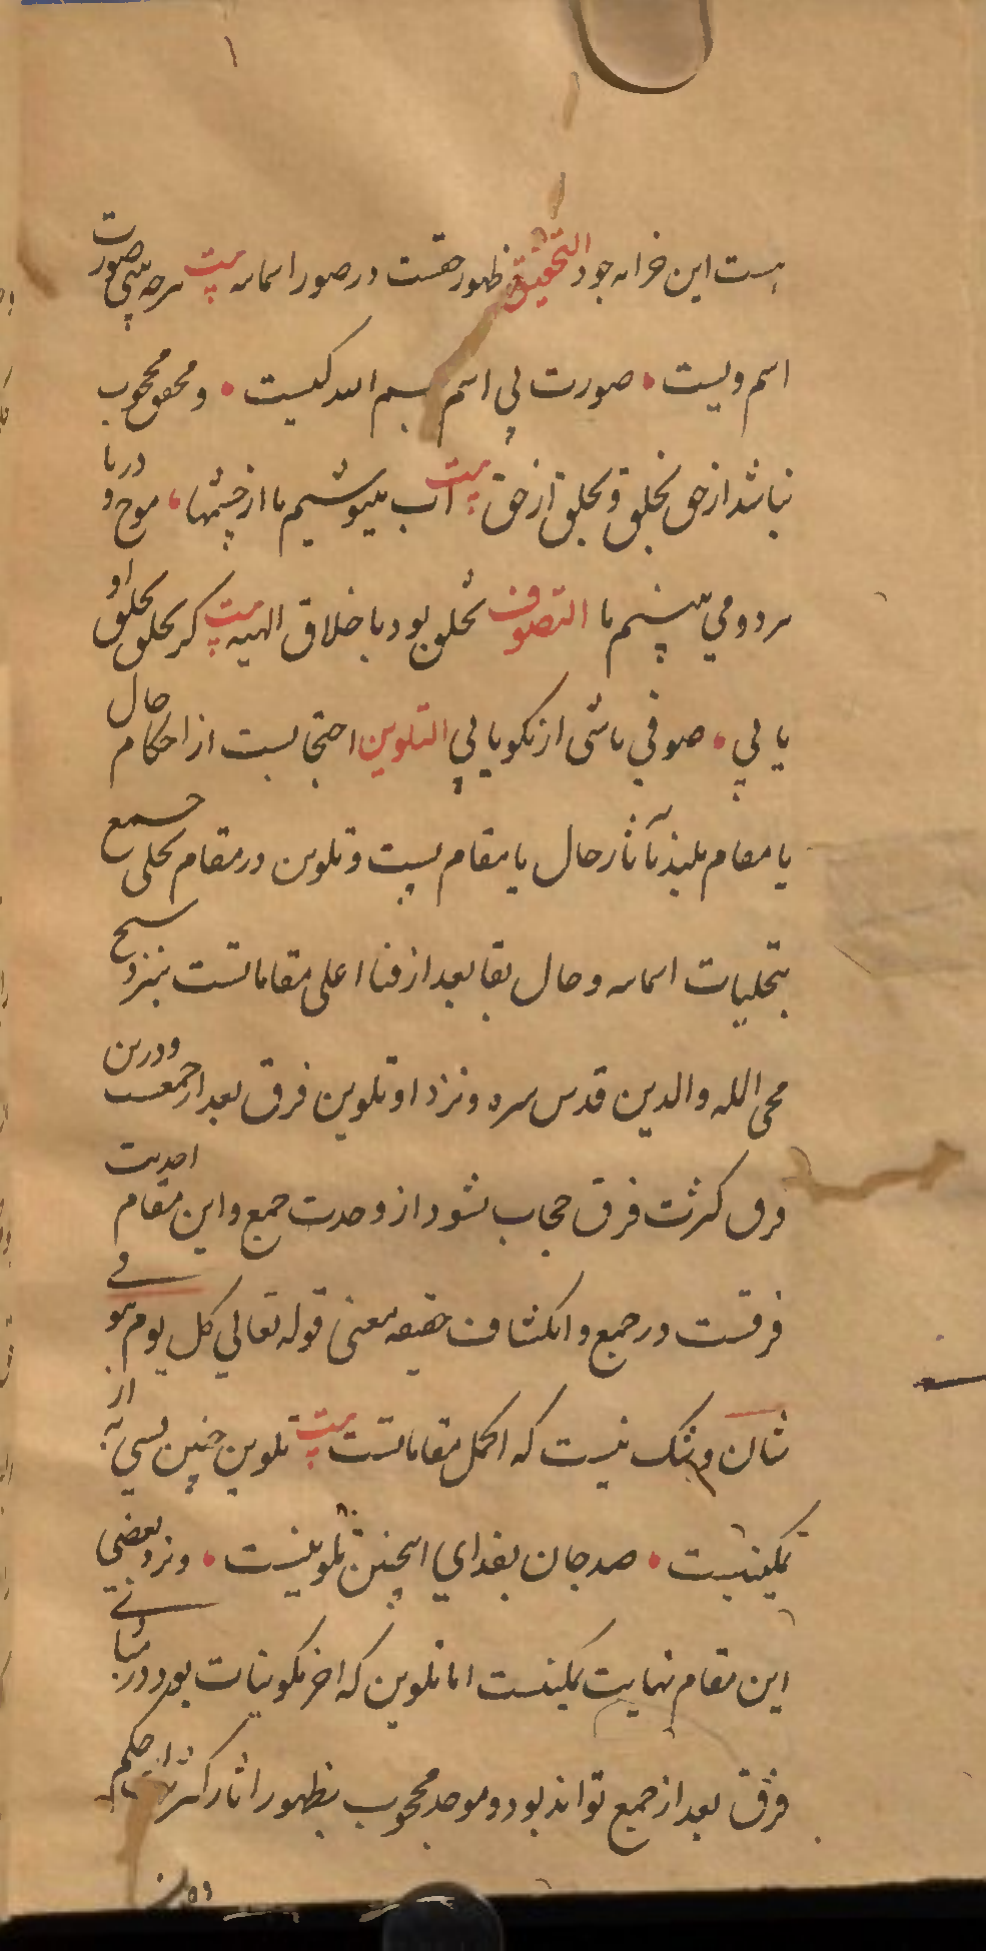 ۱
هست این خزانه جود التحقیق ظهور حقست در صور اسمائیه بیت هر چه بینی صورت
اسم ویست • صورت بی اسم بسم الله کیست • و محقق محجوب
نباشد از حق بخلق و بخلق از حق بیت آب مینوشیم ما از چشمها • موج و دریا
هر دو می بینیم ما التصوف تخلق بود باخلاق الهیه بیت گر تخلق بخلق او
یابی • صوفی باشی ازو نکو یابی التلوین احتجابست از احکام حال
یا مقام بلند بآثار حال یا مقام پست و تلوین در مقام تجلی جمع
بتجلیات اسمائیه و حال بقا بعد از فنا اعلی مقاماتست بنزد شیخ
محی المله والدین قدس سره و نزد او تلوین فرق بعد از جمعست و درین
فرق کثرت فرق حجاب نشود از وحدت جمع و این مقام احدیت
فرقست در جمع و انکشاف حقیقه معنی قوله تعالی کل یوم هو فی
شان و شک نیست که اکمل مقاماتست بیت تلوین چنین بسی به از
تمکینست • صد جان بفدای اینچنین تلوینست • و نزد بعضی
این مقام نهایت تمکینست اما تلوین که آخر تکوینات بود در مبادی
فرق بعد از جمع تواند بود و موحد محجوب بظهور اثار کثرت از حکم